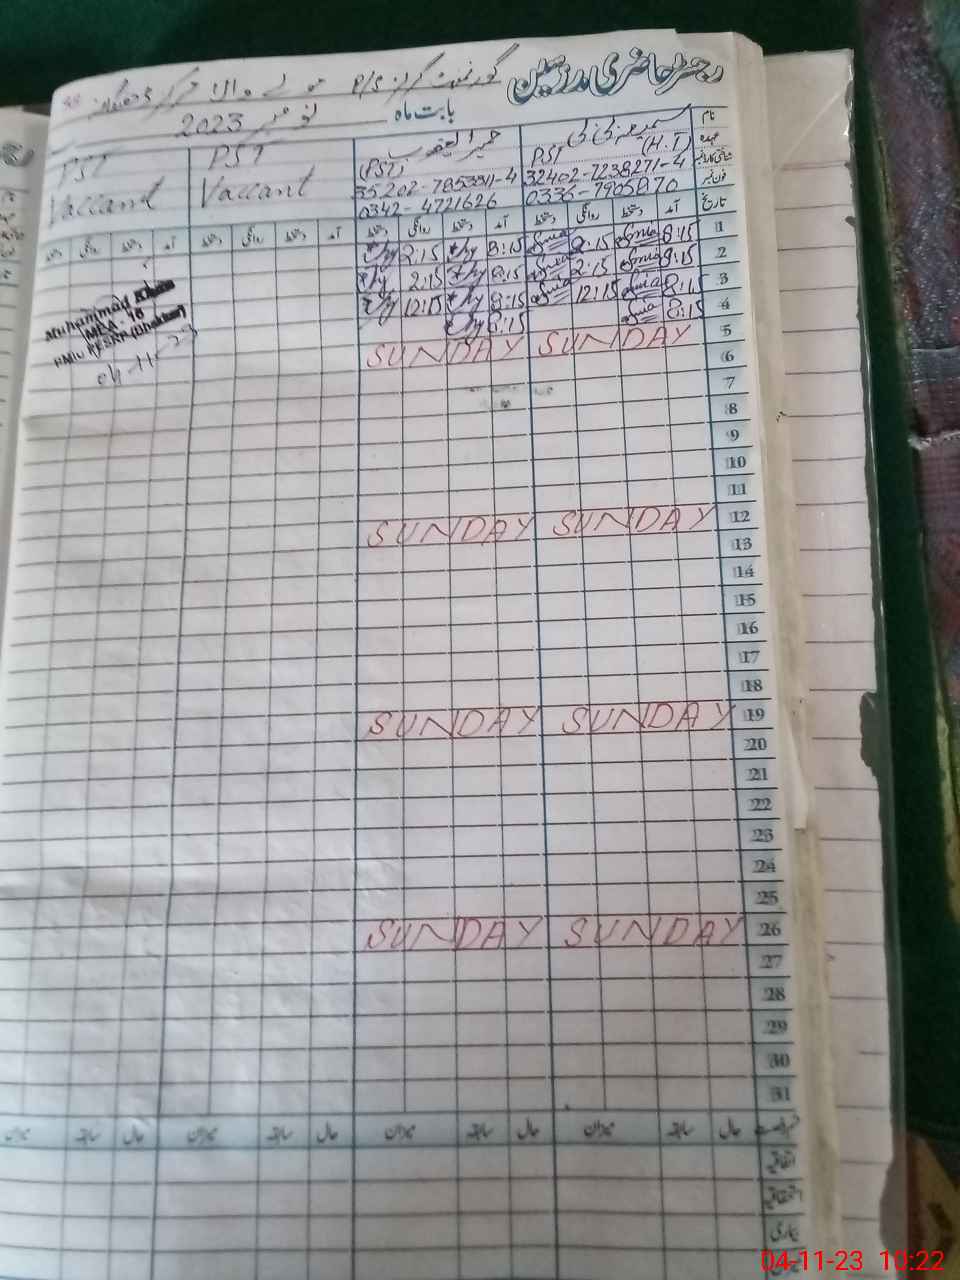 رجسٹر حاضری مدرسین گورنمنٹ گرلز P/S
بابت ماہ نومبر 2023
نام
عہدہ PST (H.T) (PST) PST PST
شناختی کارڈ نمبر 32402-7238271-4 35202-7853311-4
فون نمبر 0336-7905870 0342-4721626 Vaccant Vaccant
تاریخ آمد دستخط روانگی دستخط آمد دستخط روانگی دستخط آمد دستخط روانگی دستخط آمد دستخط روانگی دستخط
1 8:15 2:15 8:15 2:15
2 8:15 2:15 8:15 2:15
3 8:15 12:15 8:15 12:15
4 8:15 8:15
5 SUNDAY SUNDAY
6
7
8
9
10
11
12 SUNDAY SUNDAY
13
14
15
16
17
18
19 SUNDAY SUNDAY
20
21
22
23
24
25
26 SUNDAY SUNDAY
27
28
29
30
31
حال سابقہ میزان حال سابقہ میزان حال سابقہ میزان حال سابقہ میزان
اتفاقیہ
استحقاقیہ
بیماری
Muhammad
(MEA-16
04-11-23
04-11-23 10:22